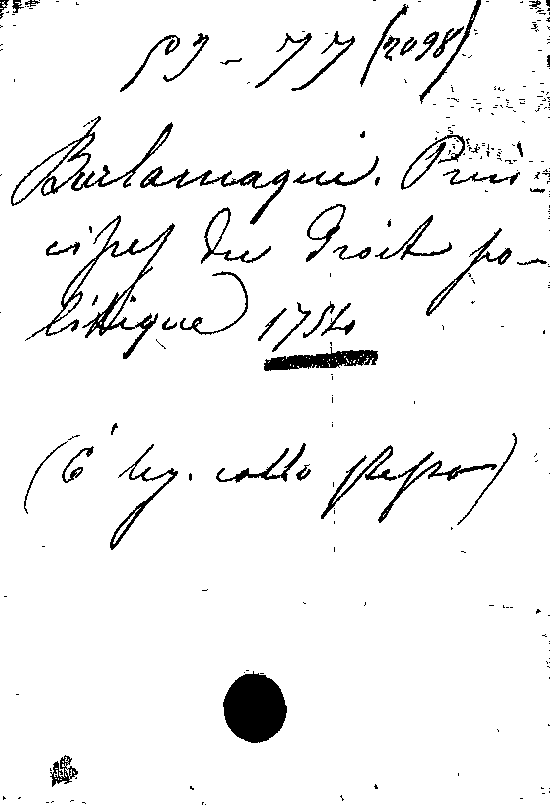 53 - 77 (2098)
Burlamaqui. Prin-
cipes du Droit po-
litique 1754
(È leg. collo stesso)